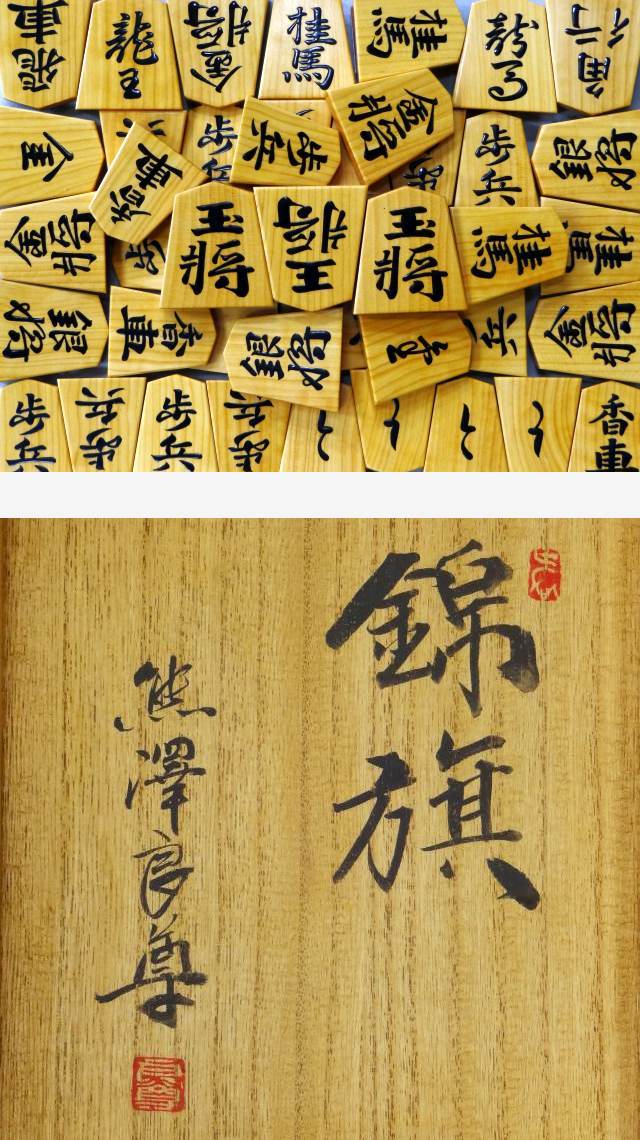 飛車
龍王
金将
桂馬
桂馬
龍馬
角行
金
歩兵
歩兵
金将
歩兵
銀将
金将
王将
王将
王将
桂馬
桂馬
銀将
香車
銀将
金将
歩兵
歩兵
歩兵
歩兵
香車
錦旗
熊澤良尊
良尊